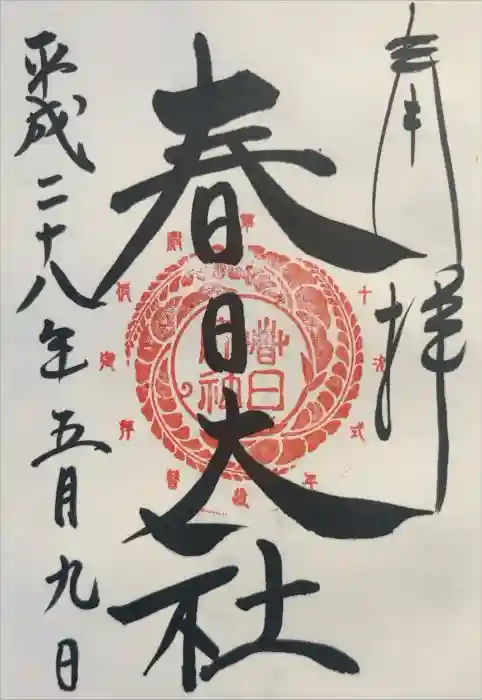 奉拝
春日大社
平成二十八年五月九日